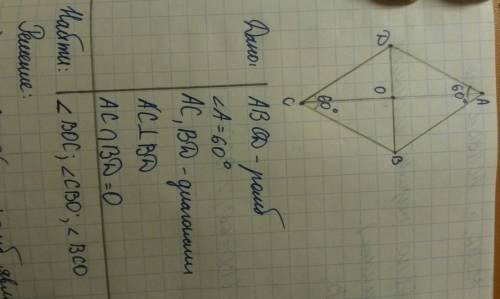 D
C
60°
O
60°
A
B
Дано:
ABCD - ромб
∠A = 60°
AC, BD - диагонали
AC ⊥ BD
AC ∩ BD = O
Найти:
∠BOC; ∠CBO; ∠BCO
Решение: